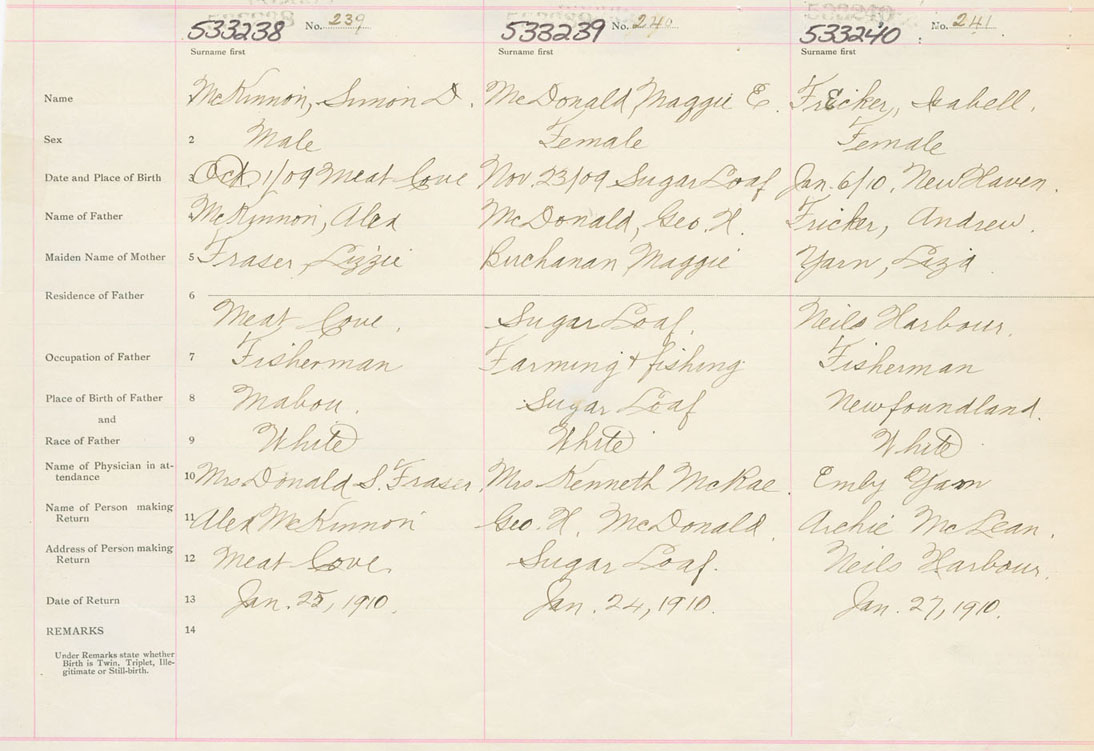 533238 No. 239 533239 No. 240 533240 No. 241
Surname first Surname first Surname first
Name McKinnon, Simon D. McDonald Maggie E. Fricker, Isabell.
Sex 2 Male Female Female
Date and Place of Birth 3 Oct 1/09 Meat Cove Nov. 23/09 Sugar Loaf Jan. 6/10, New Haven.
Name of Father McKinnon, Alex McDonald, Geo. H. Fricker, Andrew.
Maiden Name of Mother 5 Fraser, Lizzie Buchanan, Maggie Yarn, Liza
Residence of Father 6
Meat Cove. Sugar Loaf. Neils Harbour.
Occupation of Father 7 Fisherman Farming + fishing Fisherman
Place of Birth of Father 8 Mabou. Sugar Loaf Newfoundland.
and
Race of Father 9 White White White
Name of Physician in at-
tendance 10 Mrs Donald S. Fraser. Mrs Kenneth McRae. Emly Yarn
Name of Person making
Return 11 Alex McKinnon Geo. H. McDonald. Archie McLean.
Address of Person making
Return 12 Meat Cove. Sugar Loaf. Neils Harbour.
Date of Return 13 Jan. 25, 1910. Jan. 24, 1910. Jan. 27, 1910.
REMARKS 14
Under Remarks state whether
Birth is Twin, Triplet, Ille-
gitimate or Still-birth.